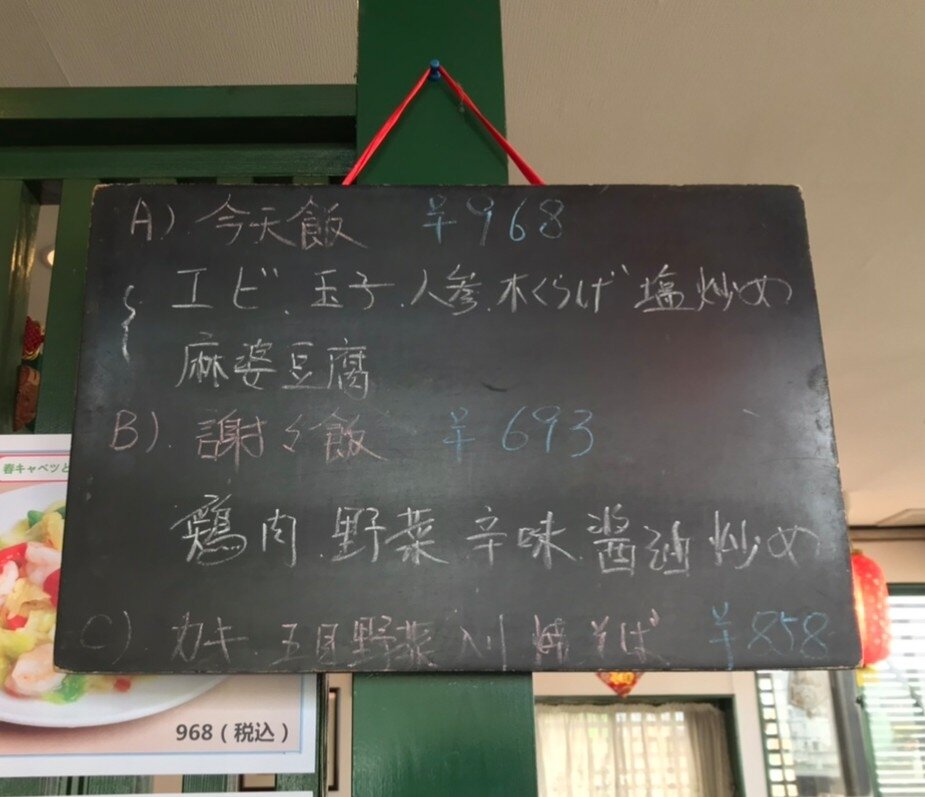 A) 今天飯 ¥968
エビ.玉子.人参.木くらげ 塩炒め
麻婆豆腐
B). 謝々飯 ¥693
鶏肉.野菜 辛味.醤油炒め
C) カキ.五目野菜入り焼そば ¥858
春キャベツと
968(税込)